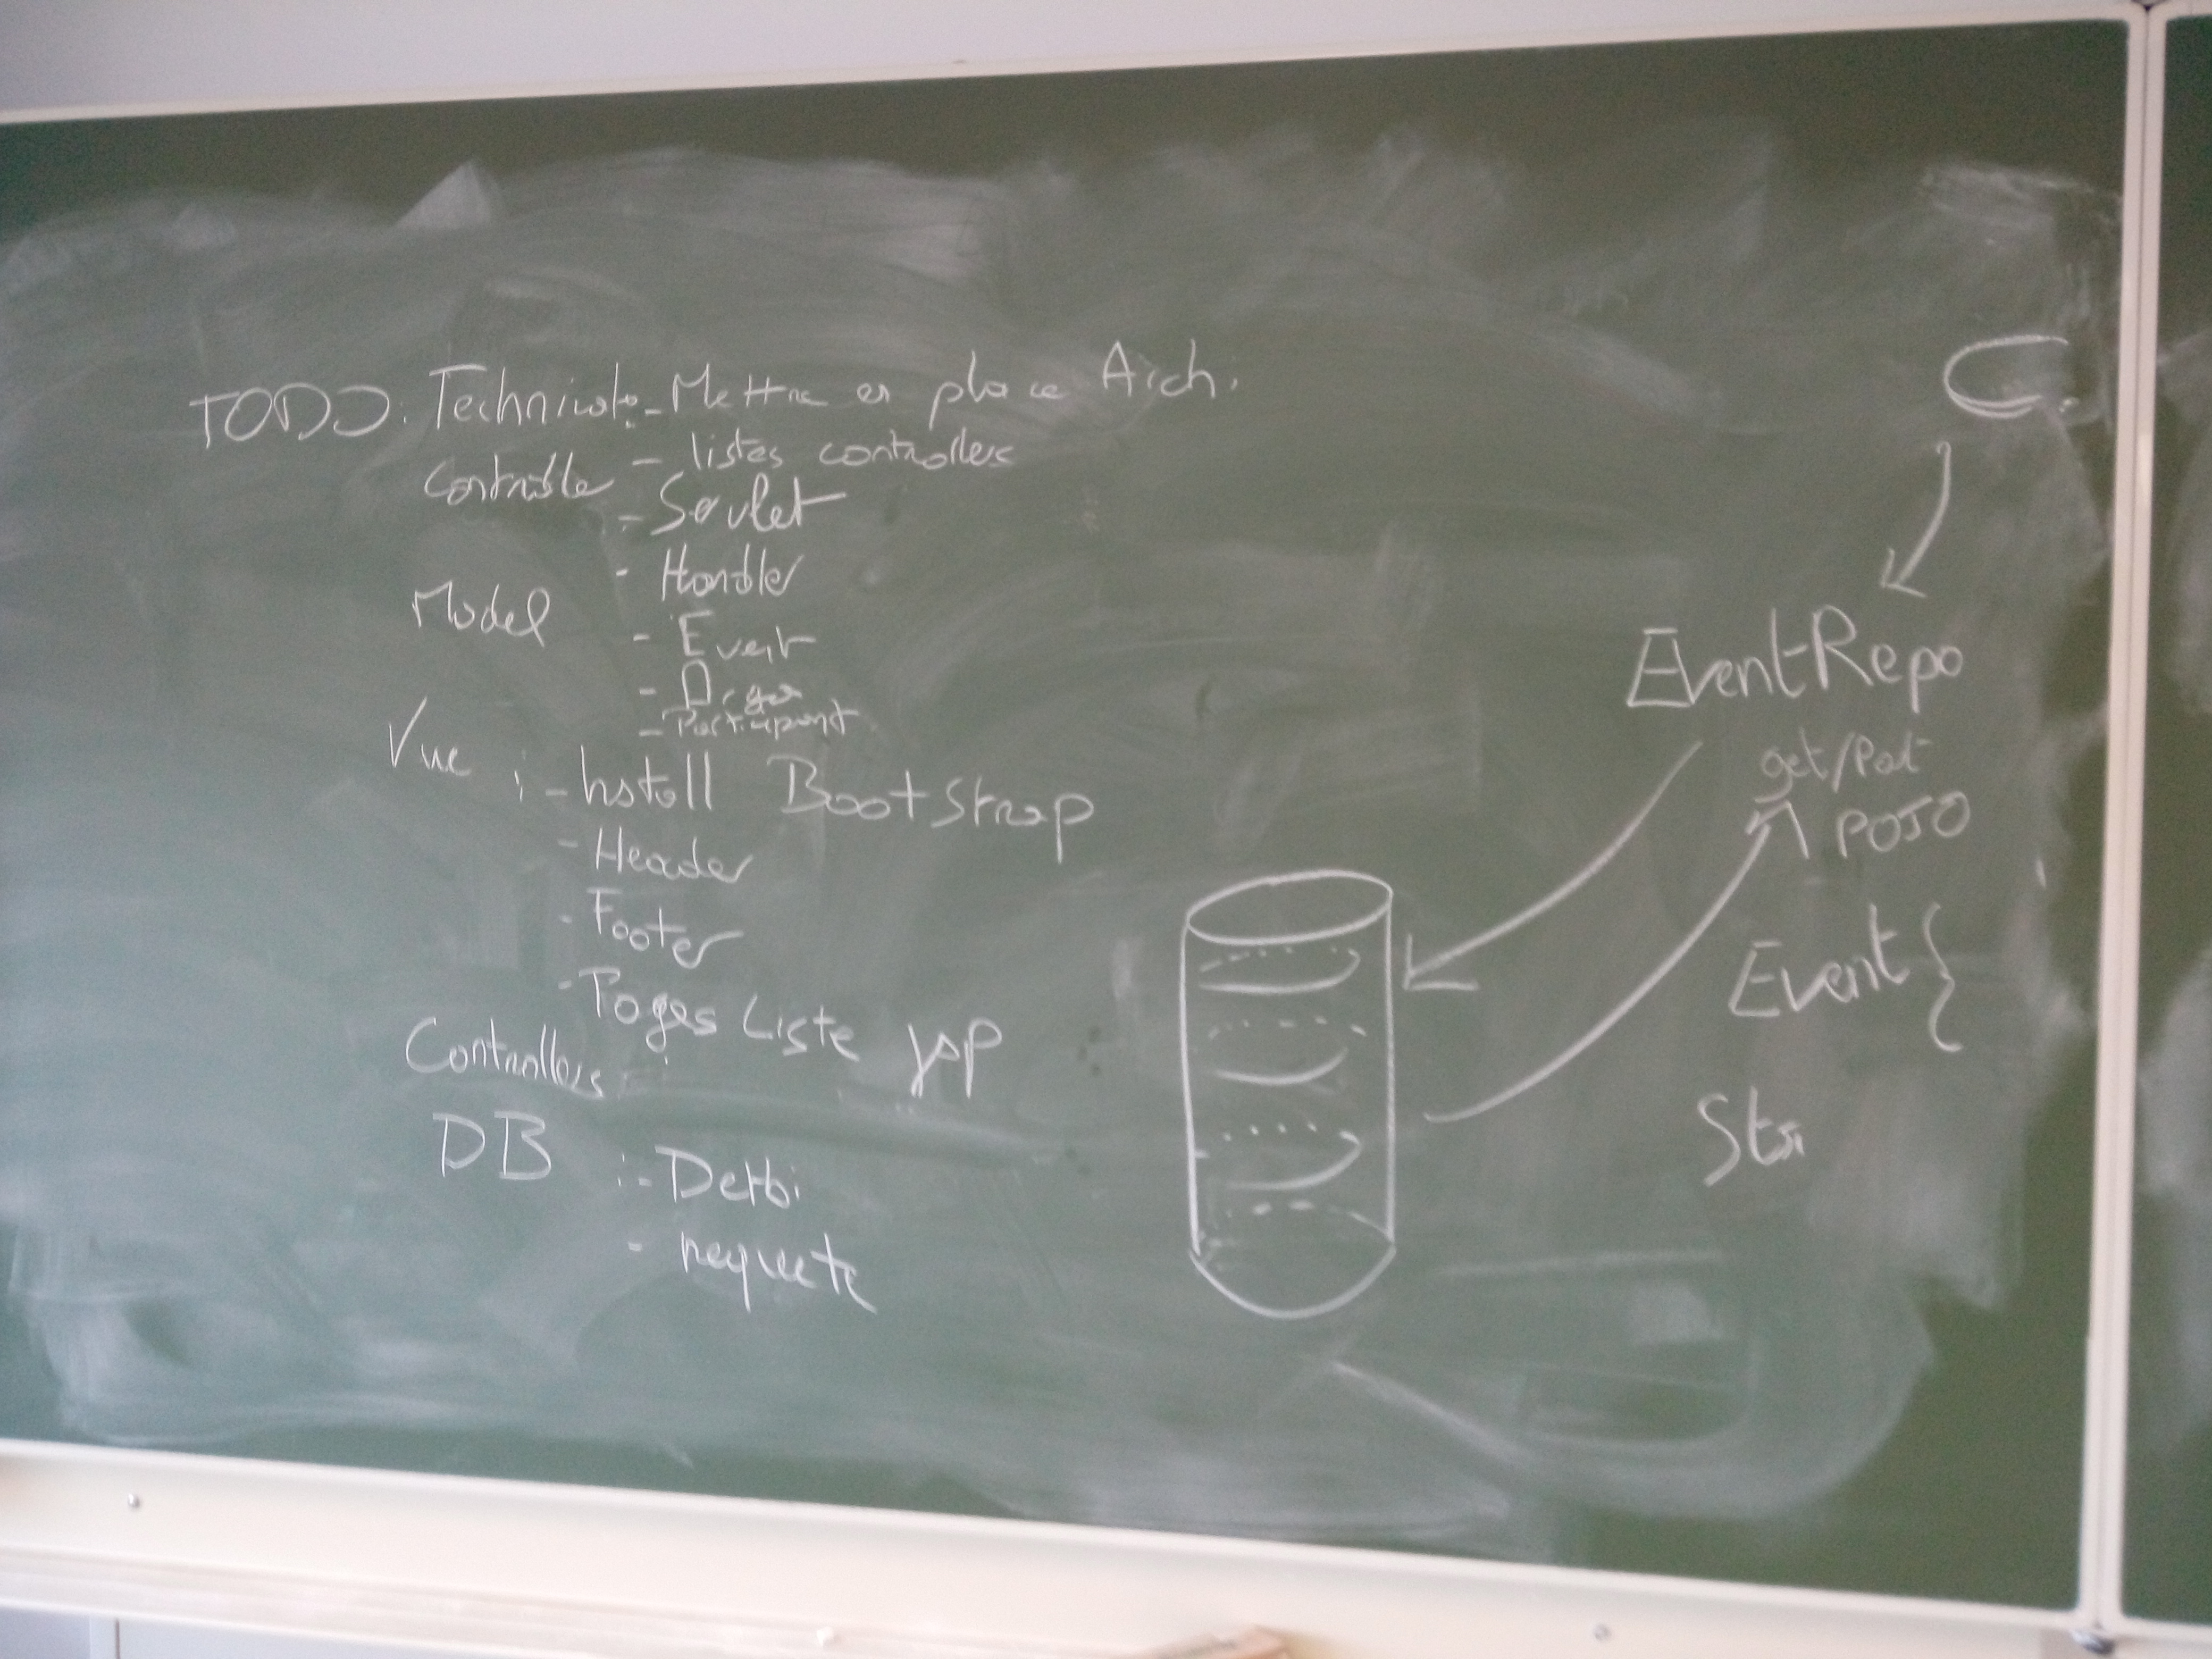 TODO : Technicole - Mettre en place Arch.
Contrôle - listes controllers
- Servlet
- Handler
Model - Event
- Orga
- Participant
Vue : - Install BootStrap
- Header
- Footer
- Pages Liste JSP
Controllers :
DB : - Derbi
- requete
C.
EventRepo
get/Post
POJO
Event {
Str